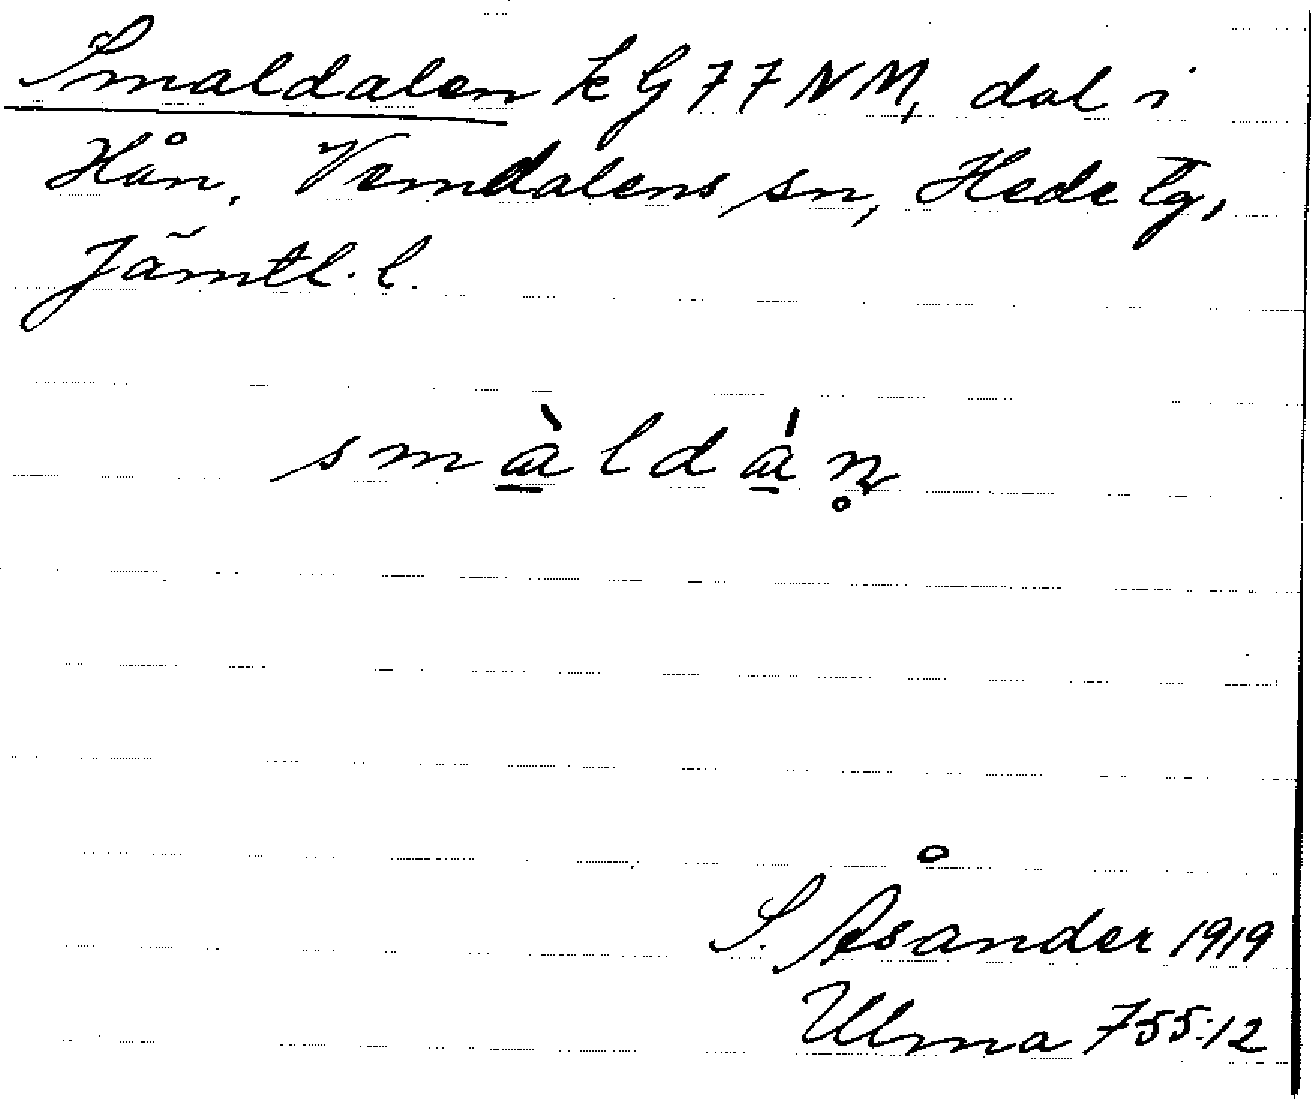 Smaldalen kG77NM, dal i
Hån, Vemdalens sn, Hede tg,
Jämtl. l.
smàldán̥
S. Åsander 1919
Ulma 755:12